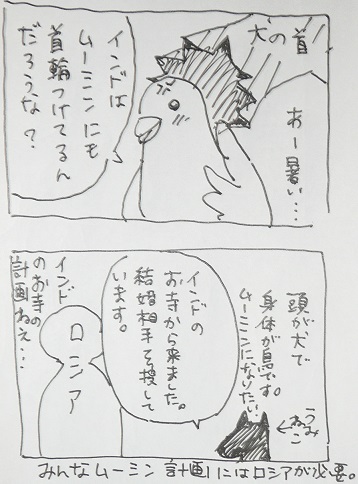 犬の首
あー暑い…
インドは
ムーミンにも
首輪つけてるん
だろうな?
頭が犬で
身体が鳥です。
ムーミンになりたい…
うみ
ねこ
インドの
お寺から来ました。
結婚相手を探して
います。
ロシア
インド
のお寺の
計画ねえ…
みんなムーミン計画にはロシアが必要。